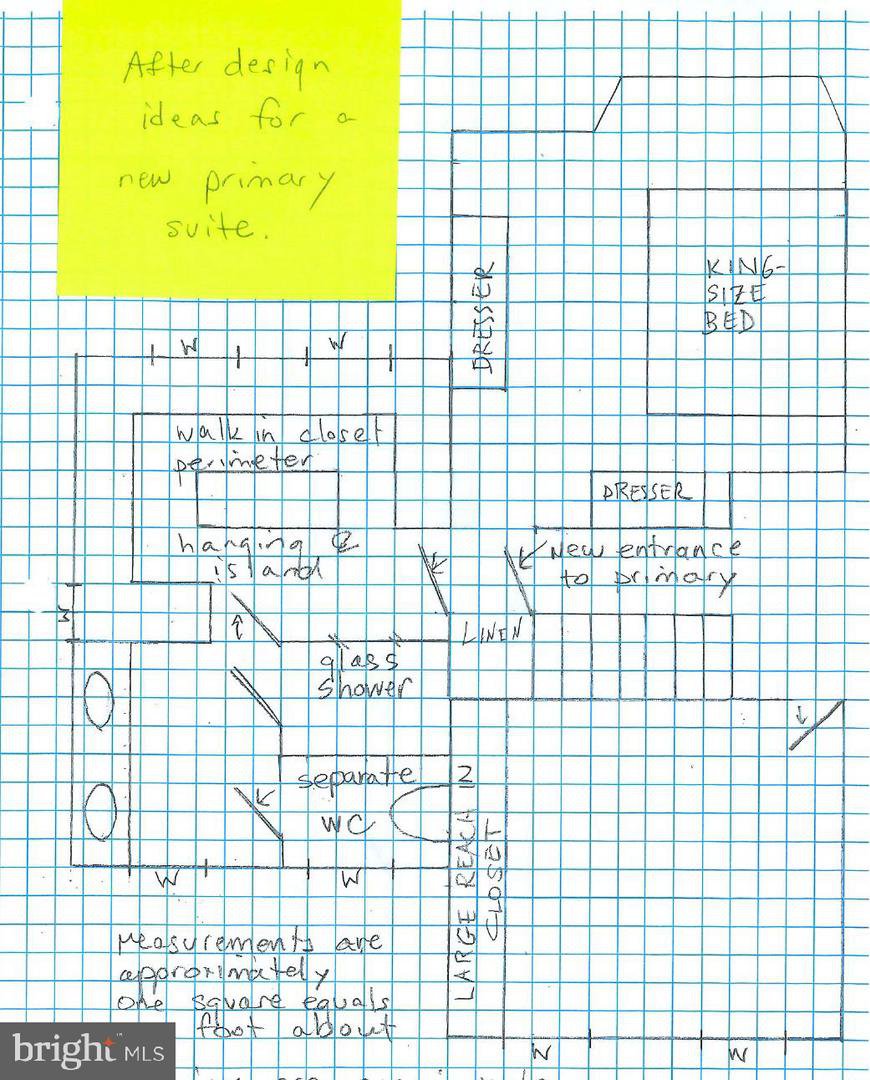 After design
ideas for a
new primary
suite.
DRESSER
KING-
SIZE
BED
W
W
walk in closet
perimeter
hanging &
island
DRESSER
New entrance
to primary
W
LINEN
glass
shower
separate
WC
LARGE REACH IN
CLOSET
W
W
Measurements are
approximately
one square equals
foot about
W
W
bright MLS